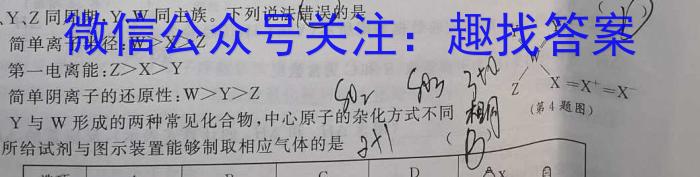 、Y、Z同周期,Y、W同主族。下列说法错误的是
微信公众号关注：趣找答案
简单离子半径:W>X>Z
第一电离能:Z>X>Y
简单阴离子的还原性:W>Y>Z
SO₂ SO₃
Y与W形成的两种常见化合物,中心原子的杂化方式不同
相同
W
Z
X=X⁺=X⁻
(第4题图)
所给试剂与图示装置能够制取相应气体的是
2+1
( B )
A B C D